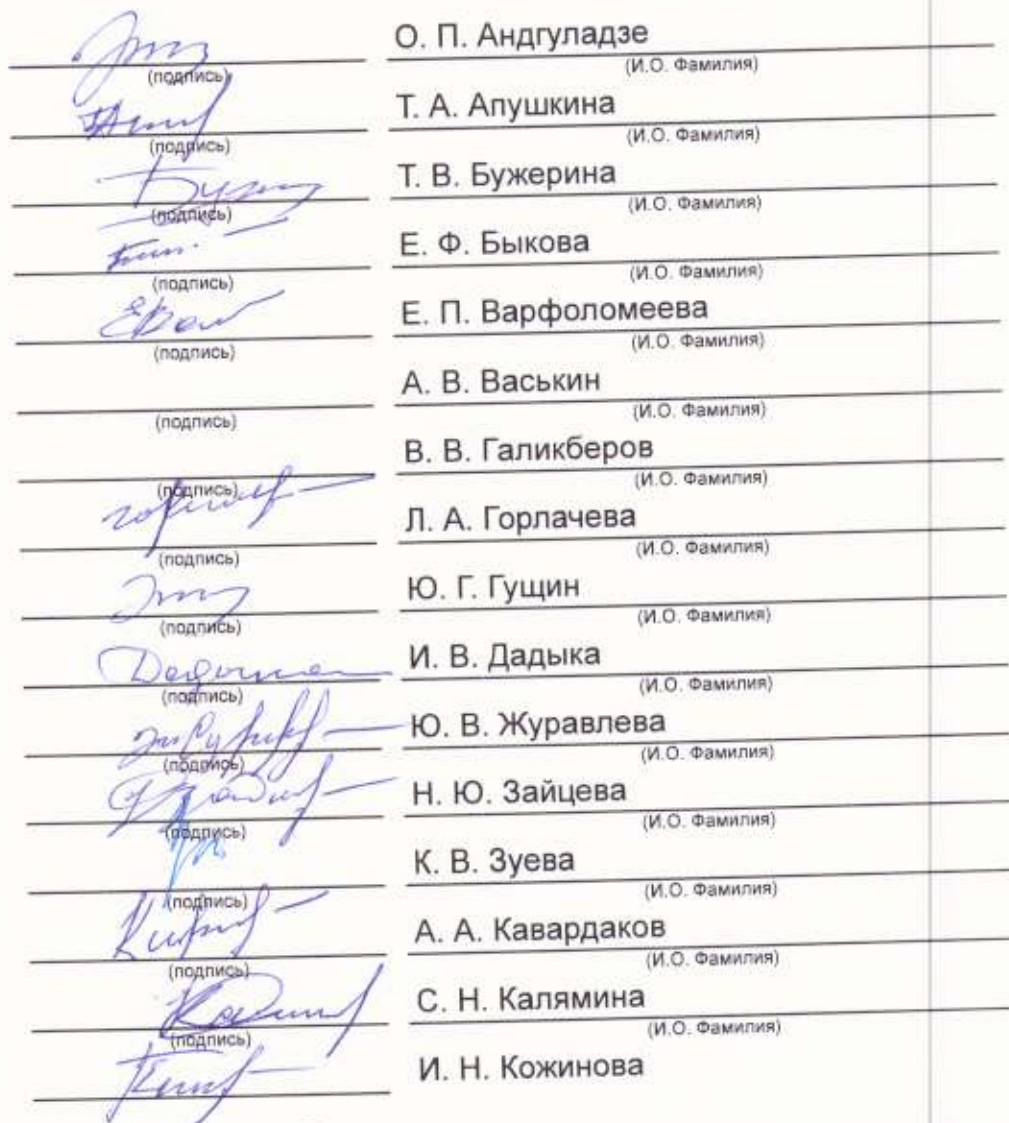 О. П. Андгуладзе
(подпись) (И.О. Фамилия)
Т. А. Апушкина
(подпись) (И.О. Фамилия)
Т. В. Бужерина
(подпись) (И.О. Фамилия)
Е. Ф. Быкова
(подпись) (И.О. Фамилия)
Е. П. Варфоломеева
(подпись) (И.О. Фамилия)
А. В. Васькин
(подпись) (И.О. Фамилия)
В. В. Галикберов
(подпись) (И.О. Фамилия)
Л. А. Горлачева
(подпись) (И.О. Фамилия)
Ю. Г. Гущин
(подпись) (И.О. Фамилия)
И. В. Дадыка
(подпись) (И.О. Фамилия)
Ю. В. Журавлева
(подпись) (И.О. Фамилия)
Н. Ю. Зайцева
(подпись) (И.О. Фамилия)
К. В. Зуева
(подпись) (И.О. Фамилия)
А. А. Кавардаков
(подпись) (И.О. Фамилия)
С. Н. Калямина
(подпись) (И.О. Фамилия)
И. Н. Кожинова